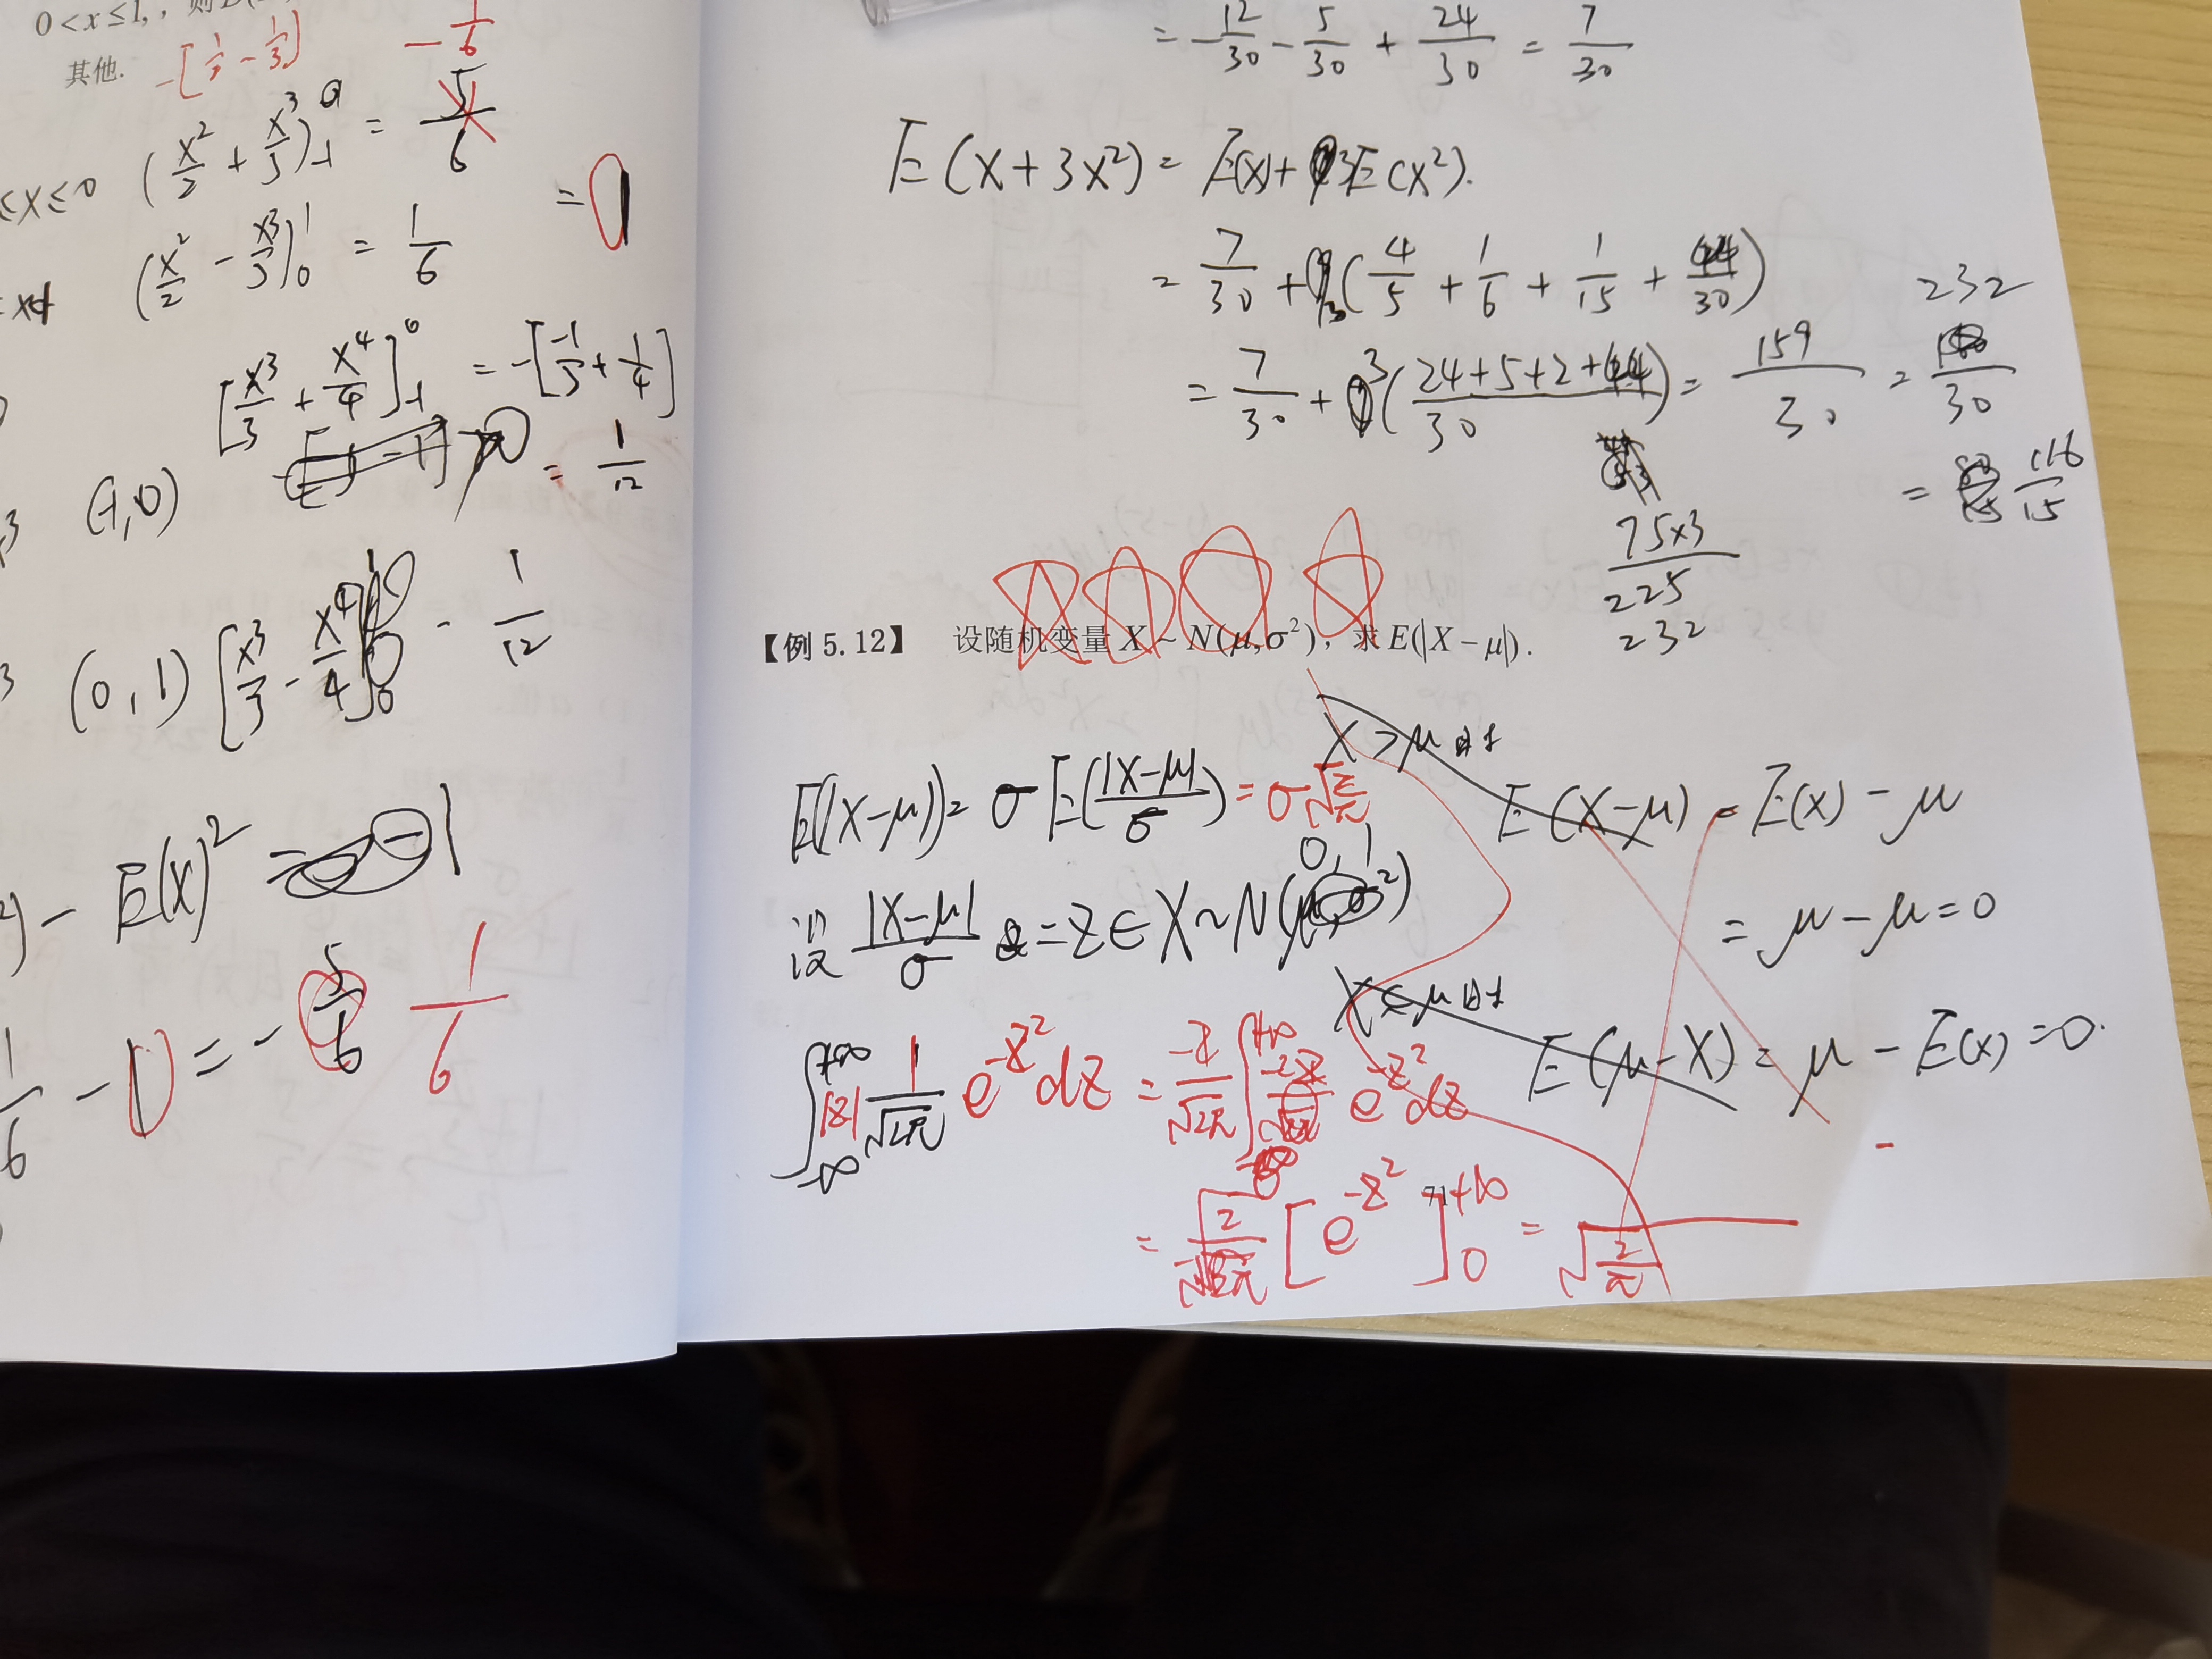 0<x≤1,
其他.
-[1/2 - 1/3]
-1/6
(x²/2 + x³/3) 0 -1 = 5/6
≤x≤0
= 1
(x²/2 - x³/3) 1 0 = 1/6
[x³/3 + x⁴/4] 0 -1 = -[-1/3 + 1/4]
= 1/12
(-1,0)
(0,1) [x³/3 - x⁴/4] 1 0 = 1/12
- E(X)² =
1/6 - 1 = - 5/6 1/6
= -12/30 - 5/30 + 24/30 = 7/30
E(X+3X²) = E(X) + 3E(X²).
= 7/30 + 3(4/5 + 1/6 + 1/15 + 44/30)
= 7/30 + 3(24+5+2+44 / 30) = 159/30 = /30
232
= 116/15
75×3
225
232
【例 5.12】 设随机变量 X ~ N(μ,σ²), 求 E(|X-μ|).
X>μ时
E(|X-μ|) = σE(|X-μ|/σ) = σ√(2/π)
E(X-μ) = E(X) - μ
= μ-μ=0
设 |X-μ|/σ = Z ∈ X~N(0,1)
X<μ时
E(μ-X) = μ - E(X) = 0.
∫ +∞ -∞ |z| 1/√2π e^-z² dz = -2/√2π ∫ +∞ 0 -2z e^-z² dz
= 2/√2π [e^-z²] +∞ 0 = √(2/π)
71